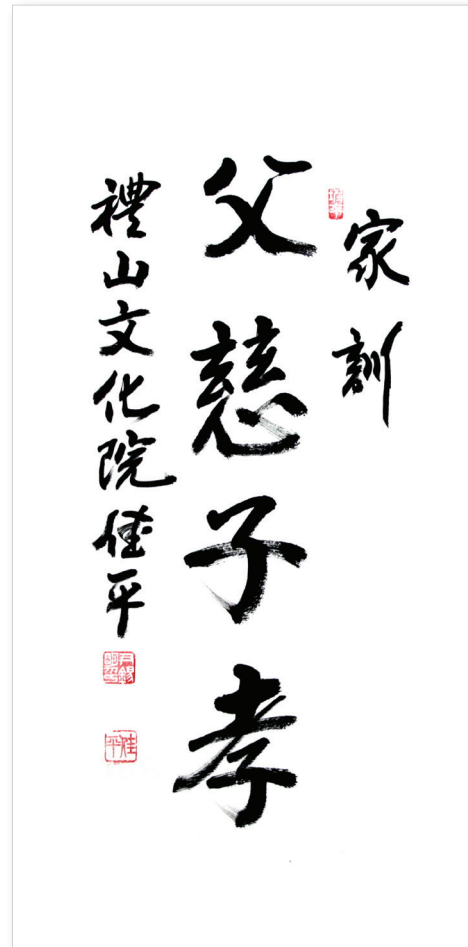 家訓
父慈子孝
禮山文化院佳平
佳平